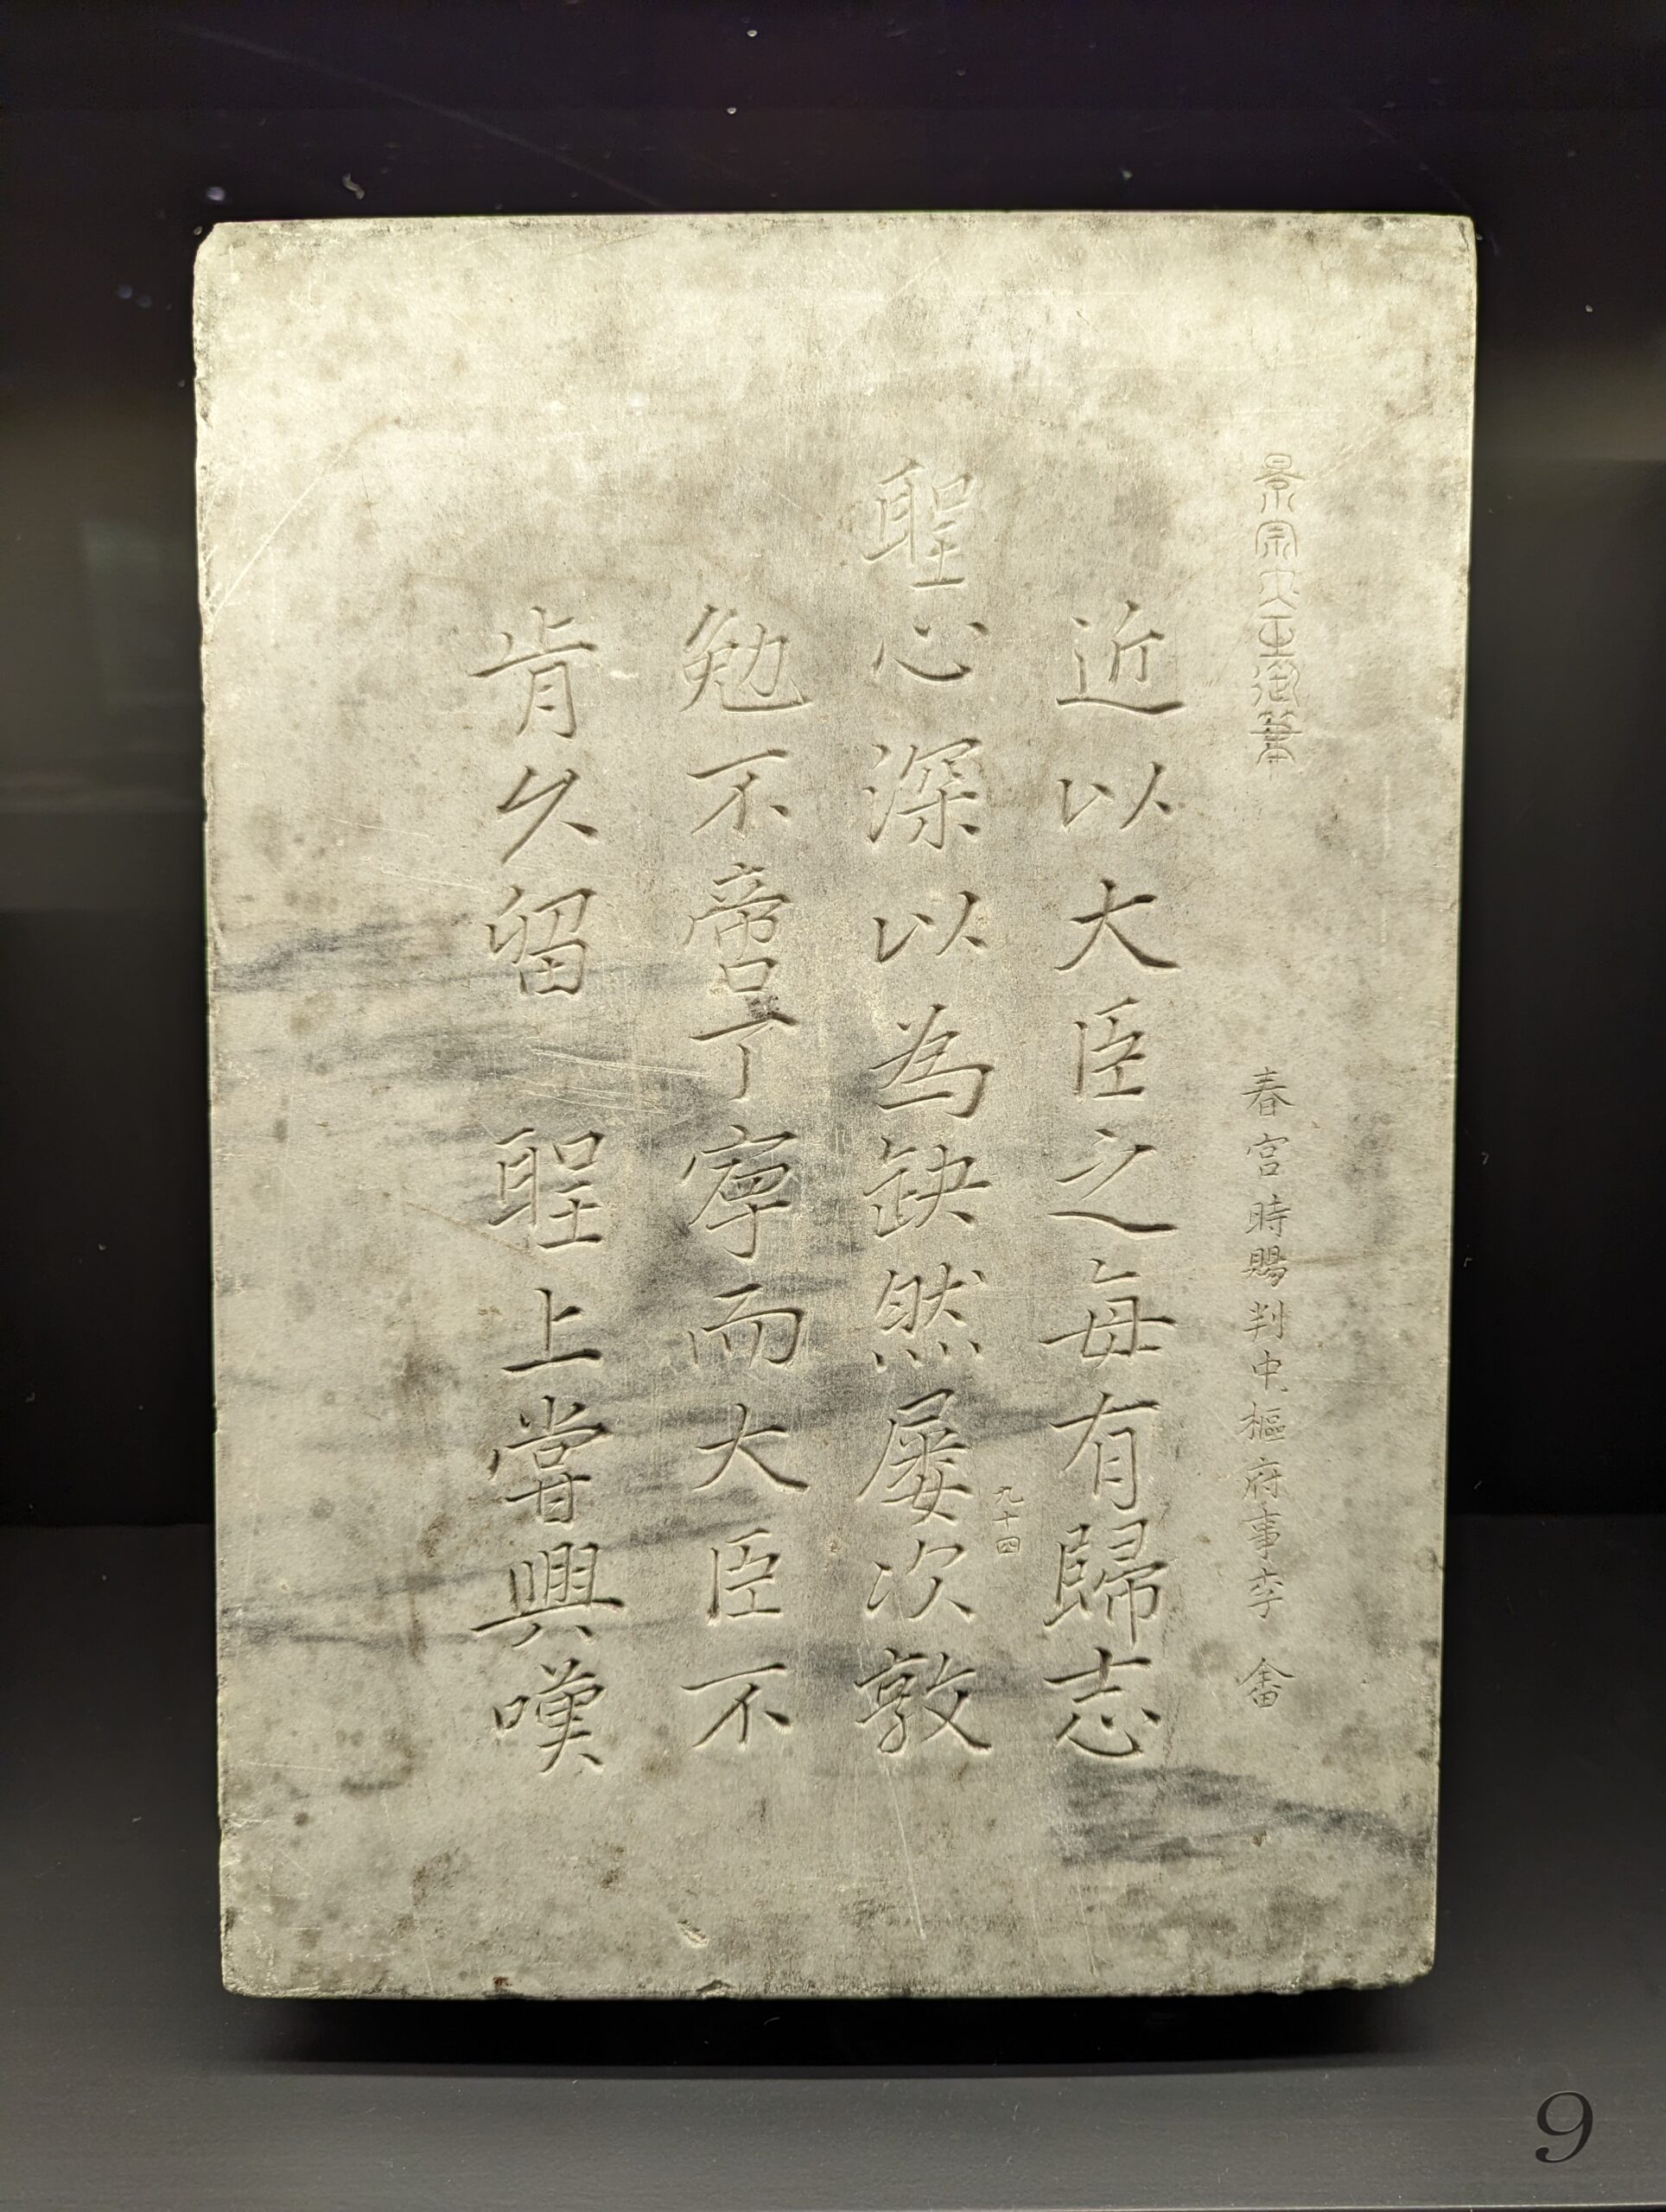 景宗大王御筆
春宮時賜判中樞府事李畬
近以大臣之每有歸志
九十四
聖心深以為缺然屢次敦
勉不啻丁寧而大臣不
肯久留聖上嘗興嘆
9